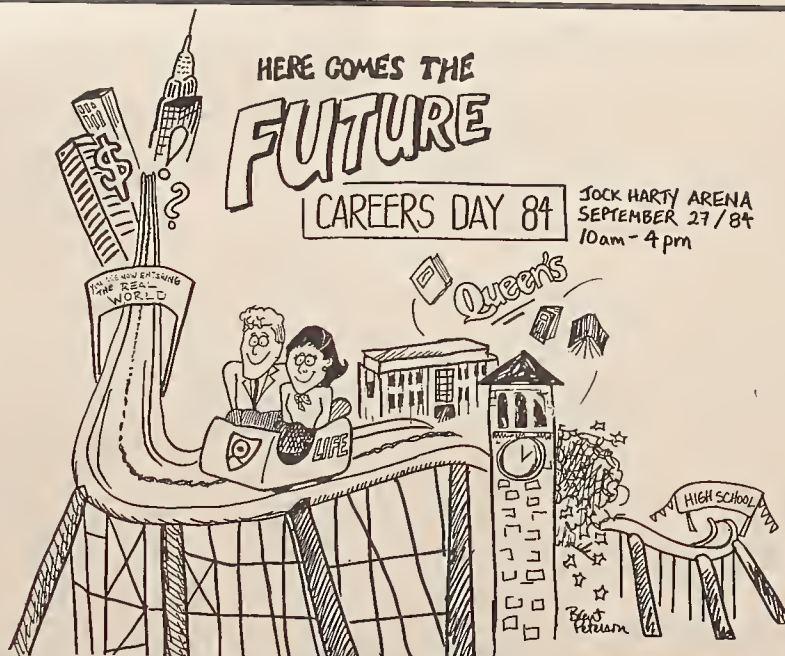 HERE COMES THE
FUTURE
CAREERS DAY 84
JOCK HARTY ARENA
SEPTEMBER 27/84
10am - 4pm
$
!
?
YOU ARE NOW ENTERING
THE REAL
WORLD
Queen's
LIFE
HIGH SCHOOL
Peterson